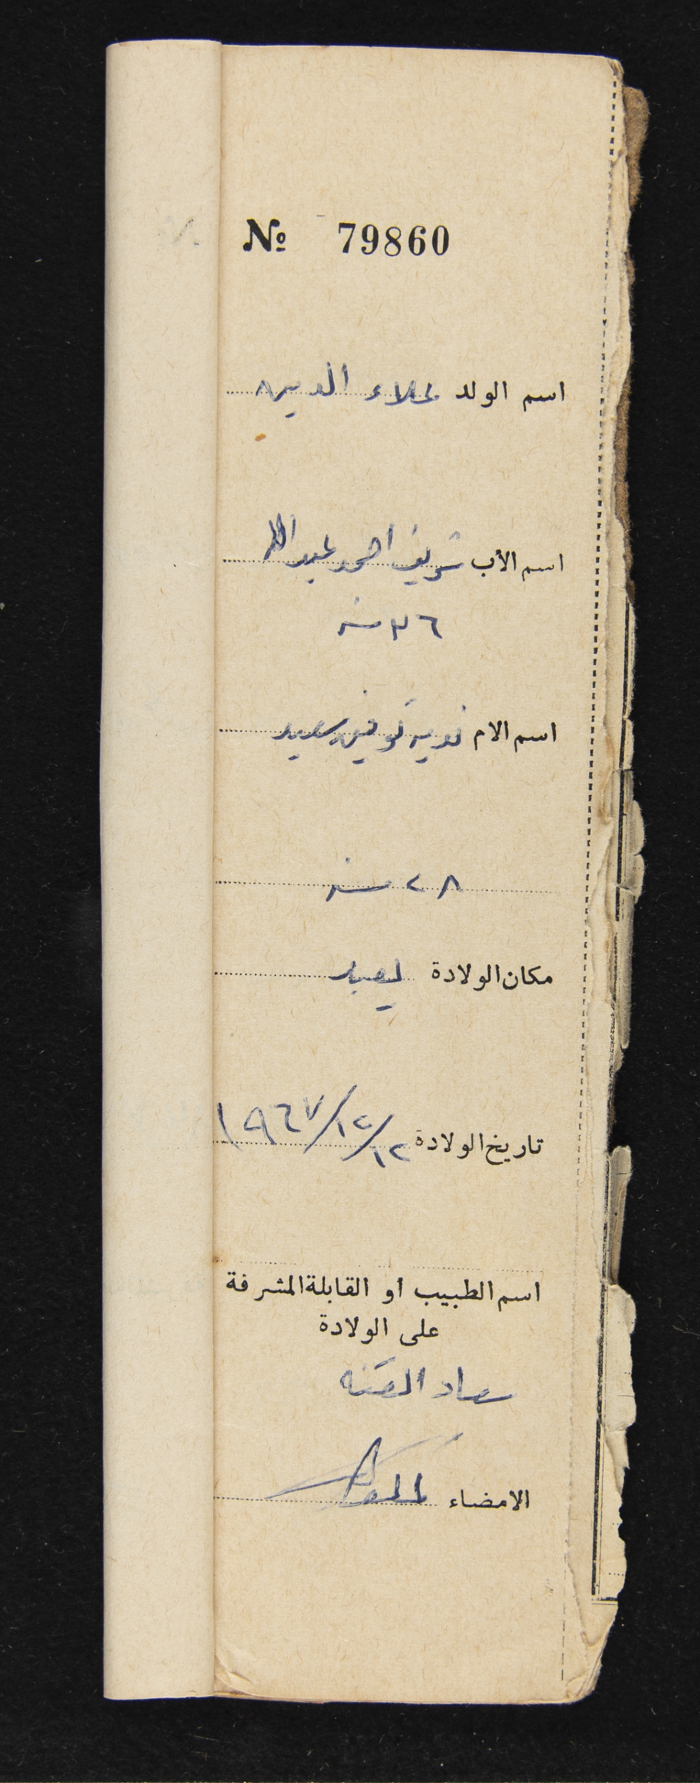 № 79860
اسم الولد علاء الدين
اسم الأب شريف احمد عبد الله
٣٦ سنه
اسم الام فوزيه توفيق سعيد
٢٨ سنه
مكان الولادة يعبد
تاريخ الولادة ١٢/١٢/١٩٦٧
اسم الطبيب او القابلة المشرفة
على الولادة
سعاد
الامضاء